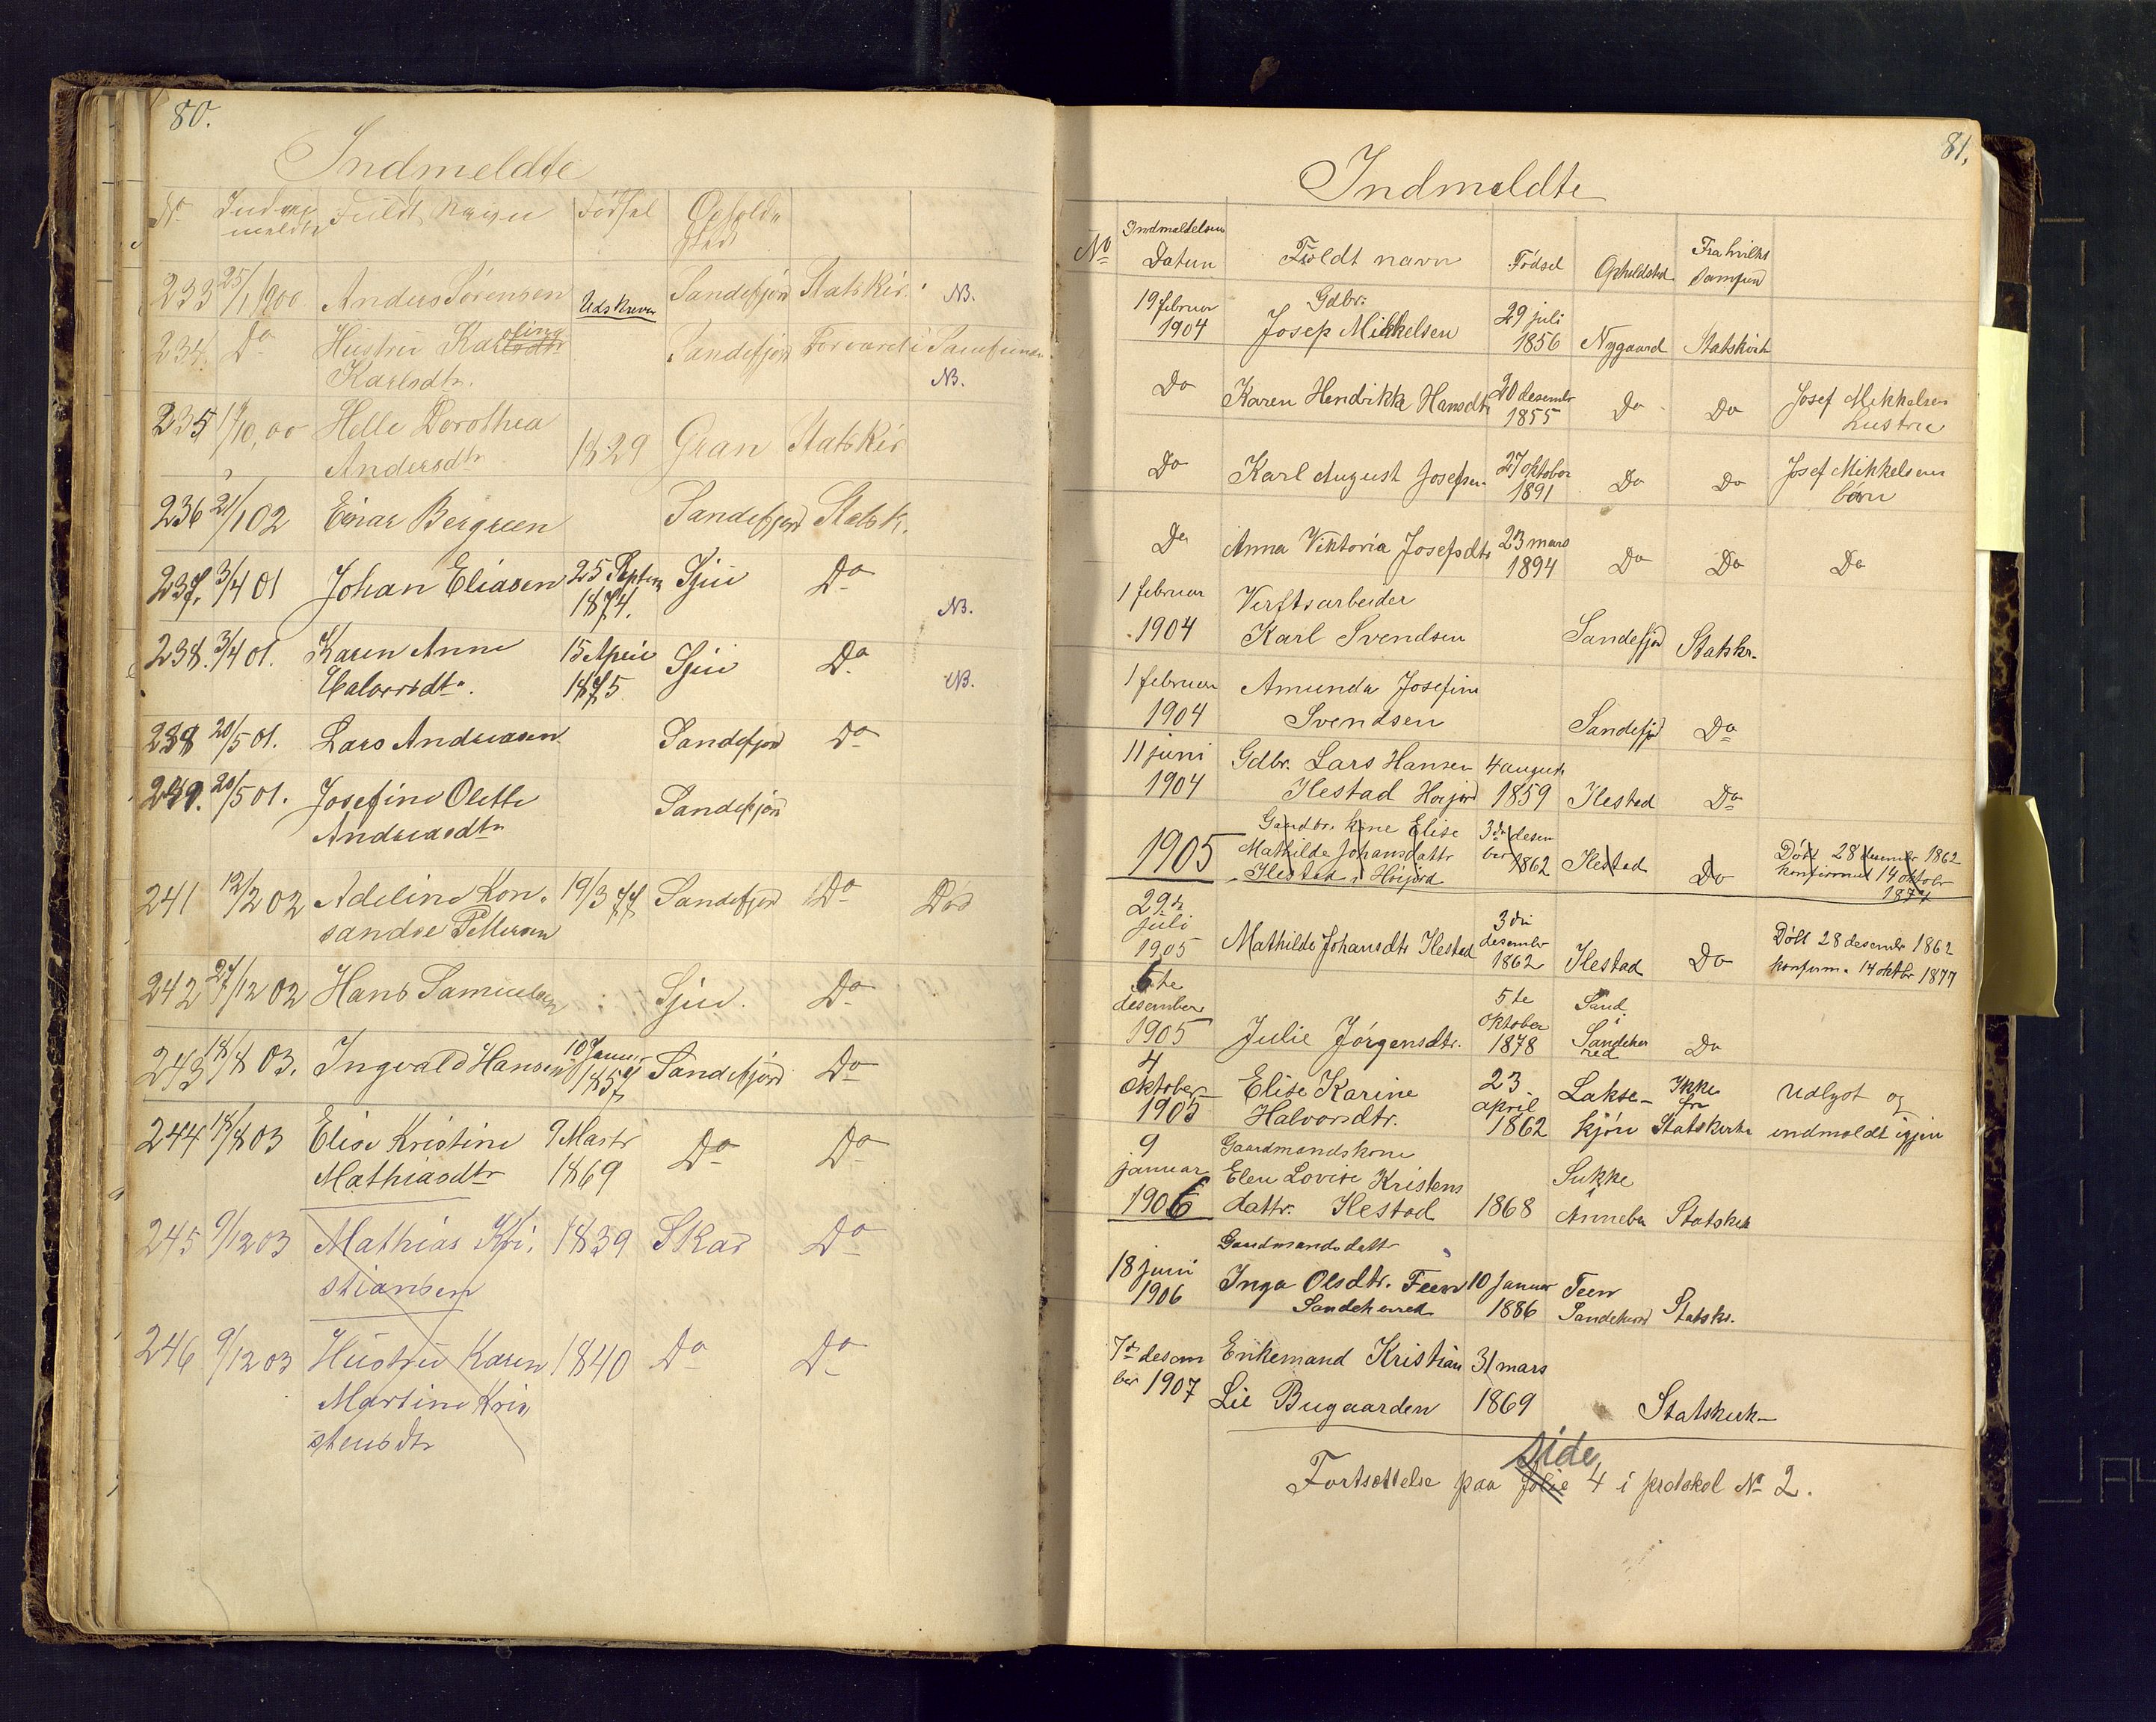 80.
Indmeldte
No Indme meldte Fuldt Navn Födsel Opholds sted
233 25/1 1900 Anders Sörensen Udskreven Sandefjord Statskir. NB.
234. Do Hustru Karoline Sandefjord Forvaret i Samfund
Karlsdtr. NB.
235 1/10,00 Helle Dorothea
Andersdtr 1829 Gran Statskir
236 21/1 02 Einar Bergreen Sandefjord Statsk.
237. 3/4 01 Johan Eliasen 25 Septem 1874. Sjue Do
NB.
238. 3/4 01. Karen Anne 15 April Sjue Do
Halvorsdtr. 1875 NB.
239 20/5 01. Lars Andreasen Sandefjord Do
240. 20/5 01. Josefine Olette Sandefjord
Andreasdtr
241 12/2 02 Adeline Kon- 19/3 77 Sandefjord Do Död
sandse Pettersen
242 27/12 02 Hans Samuelsen Sjue. Do
243 18/8 03. Ingvald Hansen 10 Januar 1857 Sandefjord Do
244 18/8 03 Elise Kristine 9 Marts Do Do
Mathiasdtr 1869
245 9/12 03 Mathias Kri- 1839 Skar Do
stiansen
246 9/12 03 Hustru Karen 1840 Do Do
Martine Kris
stensdtr
81.
Indmeldte
No Indmeldelsens Datum Fuldt navn Födsel Opholdsted Fra hvilket Samfund
19 februar Gdbr. 29 juli
1904 Josep Mikkelsen 1856 Nygaard Statskirk
Do Karen Hendrikke Hansdtr 20 desember 1855 Do Do Josef Mikkelsen
hustru
Do Karl August Josefsen 27 oktober 1891 Do Do Josef Mikkelsens
börn
Do Anna Viktoria Josefsdtr 23 mars 1894 Do Do Do
1 februar Verftsarbeider
1904 Karl Svendsen Sandefjord Statskr.
1 februar Amunda Josefine
1904 Svendsen Sandefjd Do
11 juni Gdbr. Lars Hansen 4 august
1904 Ilestad Höijord 1859 Ilestad Do
Gaardbr. kone Elise 3die desem
1905 Mathilde Johansdattr ber 1862 Ilestad Do Döbt 28 desember 1862
Ilestad i Höijord konfirmed 14 oktobr
1877
29de
juli 3die
1905 Mathilde Johansdtr Ilestad desember 1862 Ilestad Do Döbt 28 desembr 1862
konfirm. 14 oktbr 1877
6te
desember 5te Sand
1905 Julie Jörgensdtr. oktober 1878 i Sandeherred Do
4
oktober Elise Karine 23 Lakse- Ikke fra Udlyst og
1905 Halvorsdtr. april 1862 kjön Statskirke indmeldt igjen
9 Gaardmandskone
januar Elen Lovise Kristens Sukke
1906 dattr. Ilestad 1868 i Annebu Statskirk
Gaardmandsdattr
18 juni Inga Olsdtr. Feen 10 Januar Feen
1906 Sandeherred 1886 Sandeherrd Statskr.
7de desem Enkemand Kristian 31 mars
ber 1907 Lie Bugaarden 1869 Statskirk
side
Fortsættelse paa folie 4 i protokol No 2.